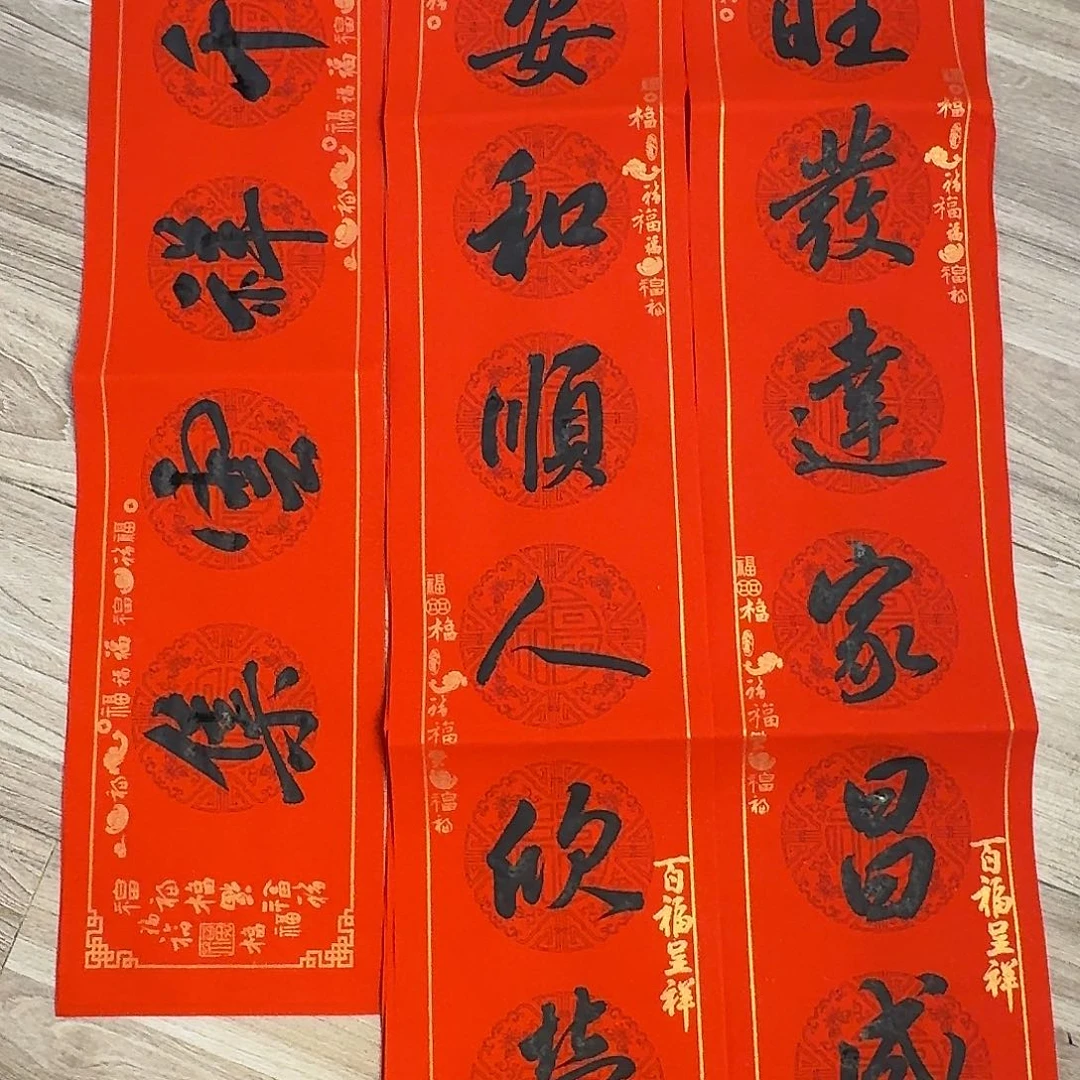 旺發達家昌
百福呈祥
安和順人欣
百福呈祥
千祥雲集